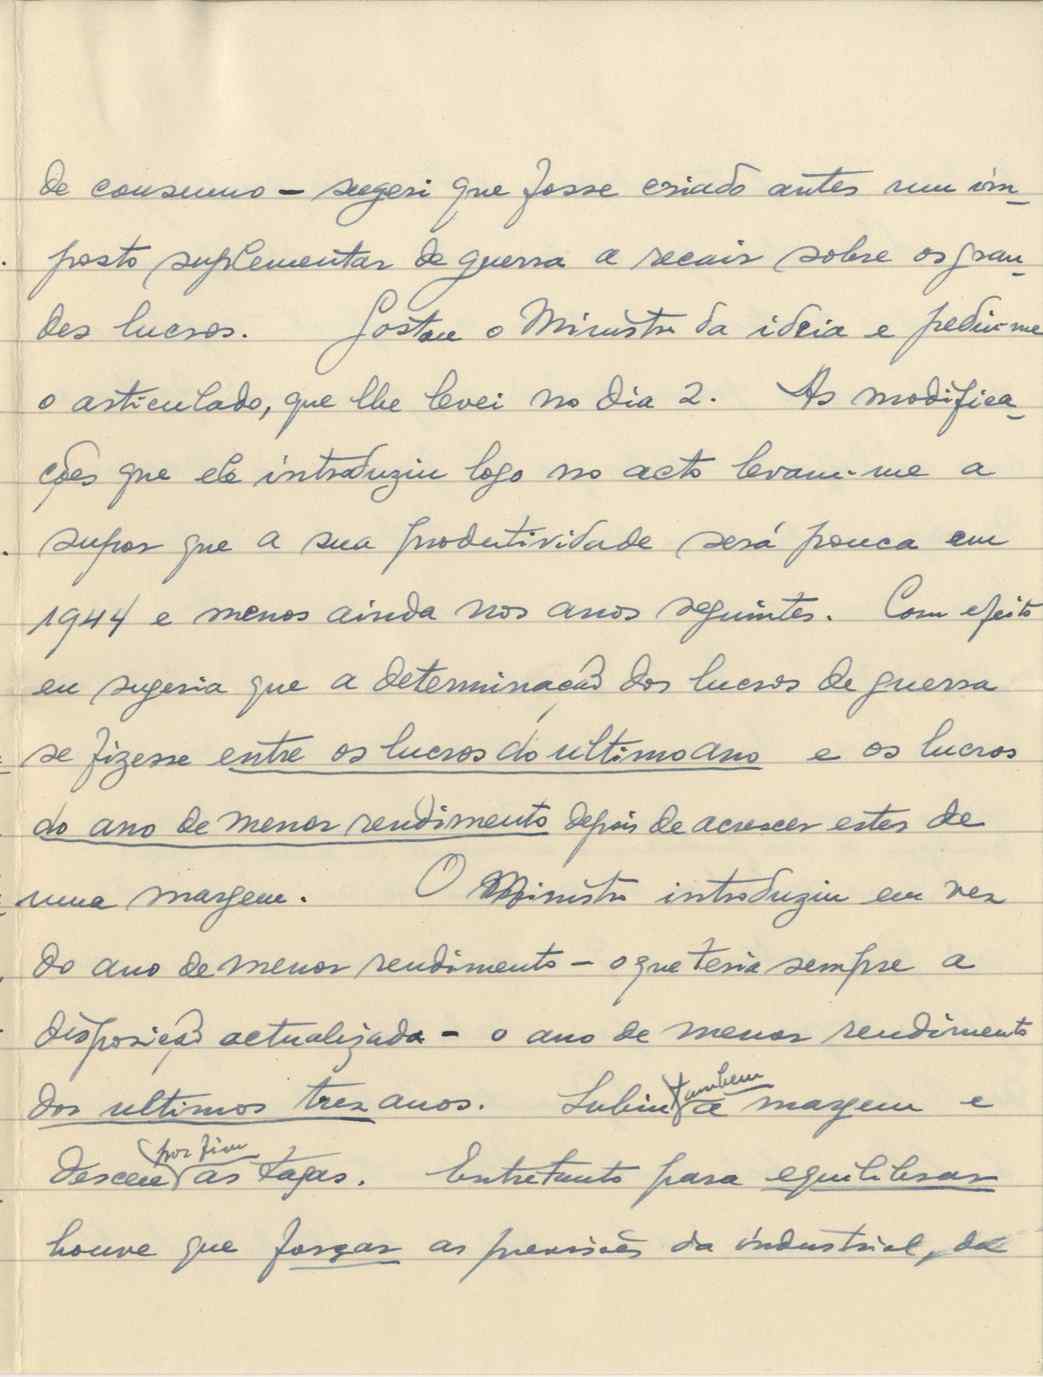 de consumo – sugeri que fosse criado antes um im-
posto suplementar de guerra a recair sobre os gran-
des lucros. Gostou o Ministro da ideia e pediu-me
o articulado, que lhe levei no dia 2. As modifica-
ções que ele introduziu logo no acto levam-me a
supor que a sua produtividade será pouca em
1944 e menos ainda nos anos seguintes. Com efeito
eu sugeria que a determinação dos lucros de guerra
se fizesse entre os lucros do ultimo ano e os lucros
do ano de menor rendimento depois de acrescer estes de
uma margem. O Ministro introduziu em vez
do ano de menor rendimento – o que teria sempre a
disposição actualizada – o ano de menor rendimento
dos ultimos tres anos. Subiu tambem a margem e
desceu por fim as taxas. Entretanto para equilibrar
houve que forçar as previsões da industrial, da